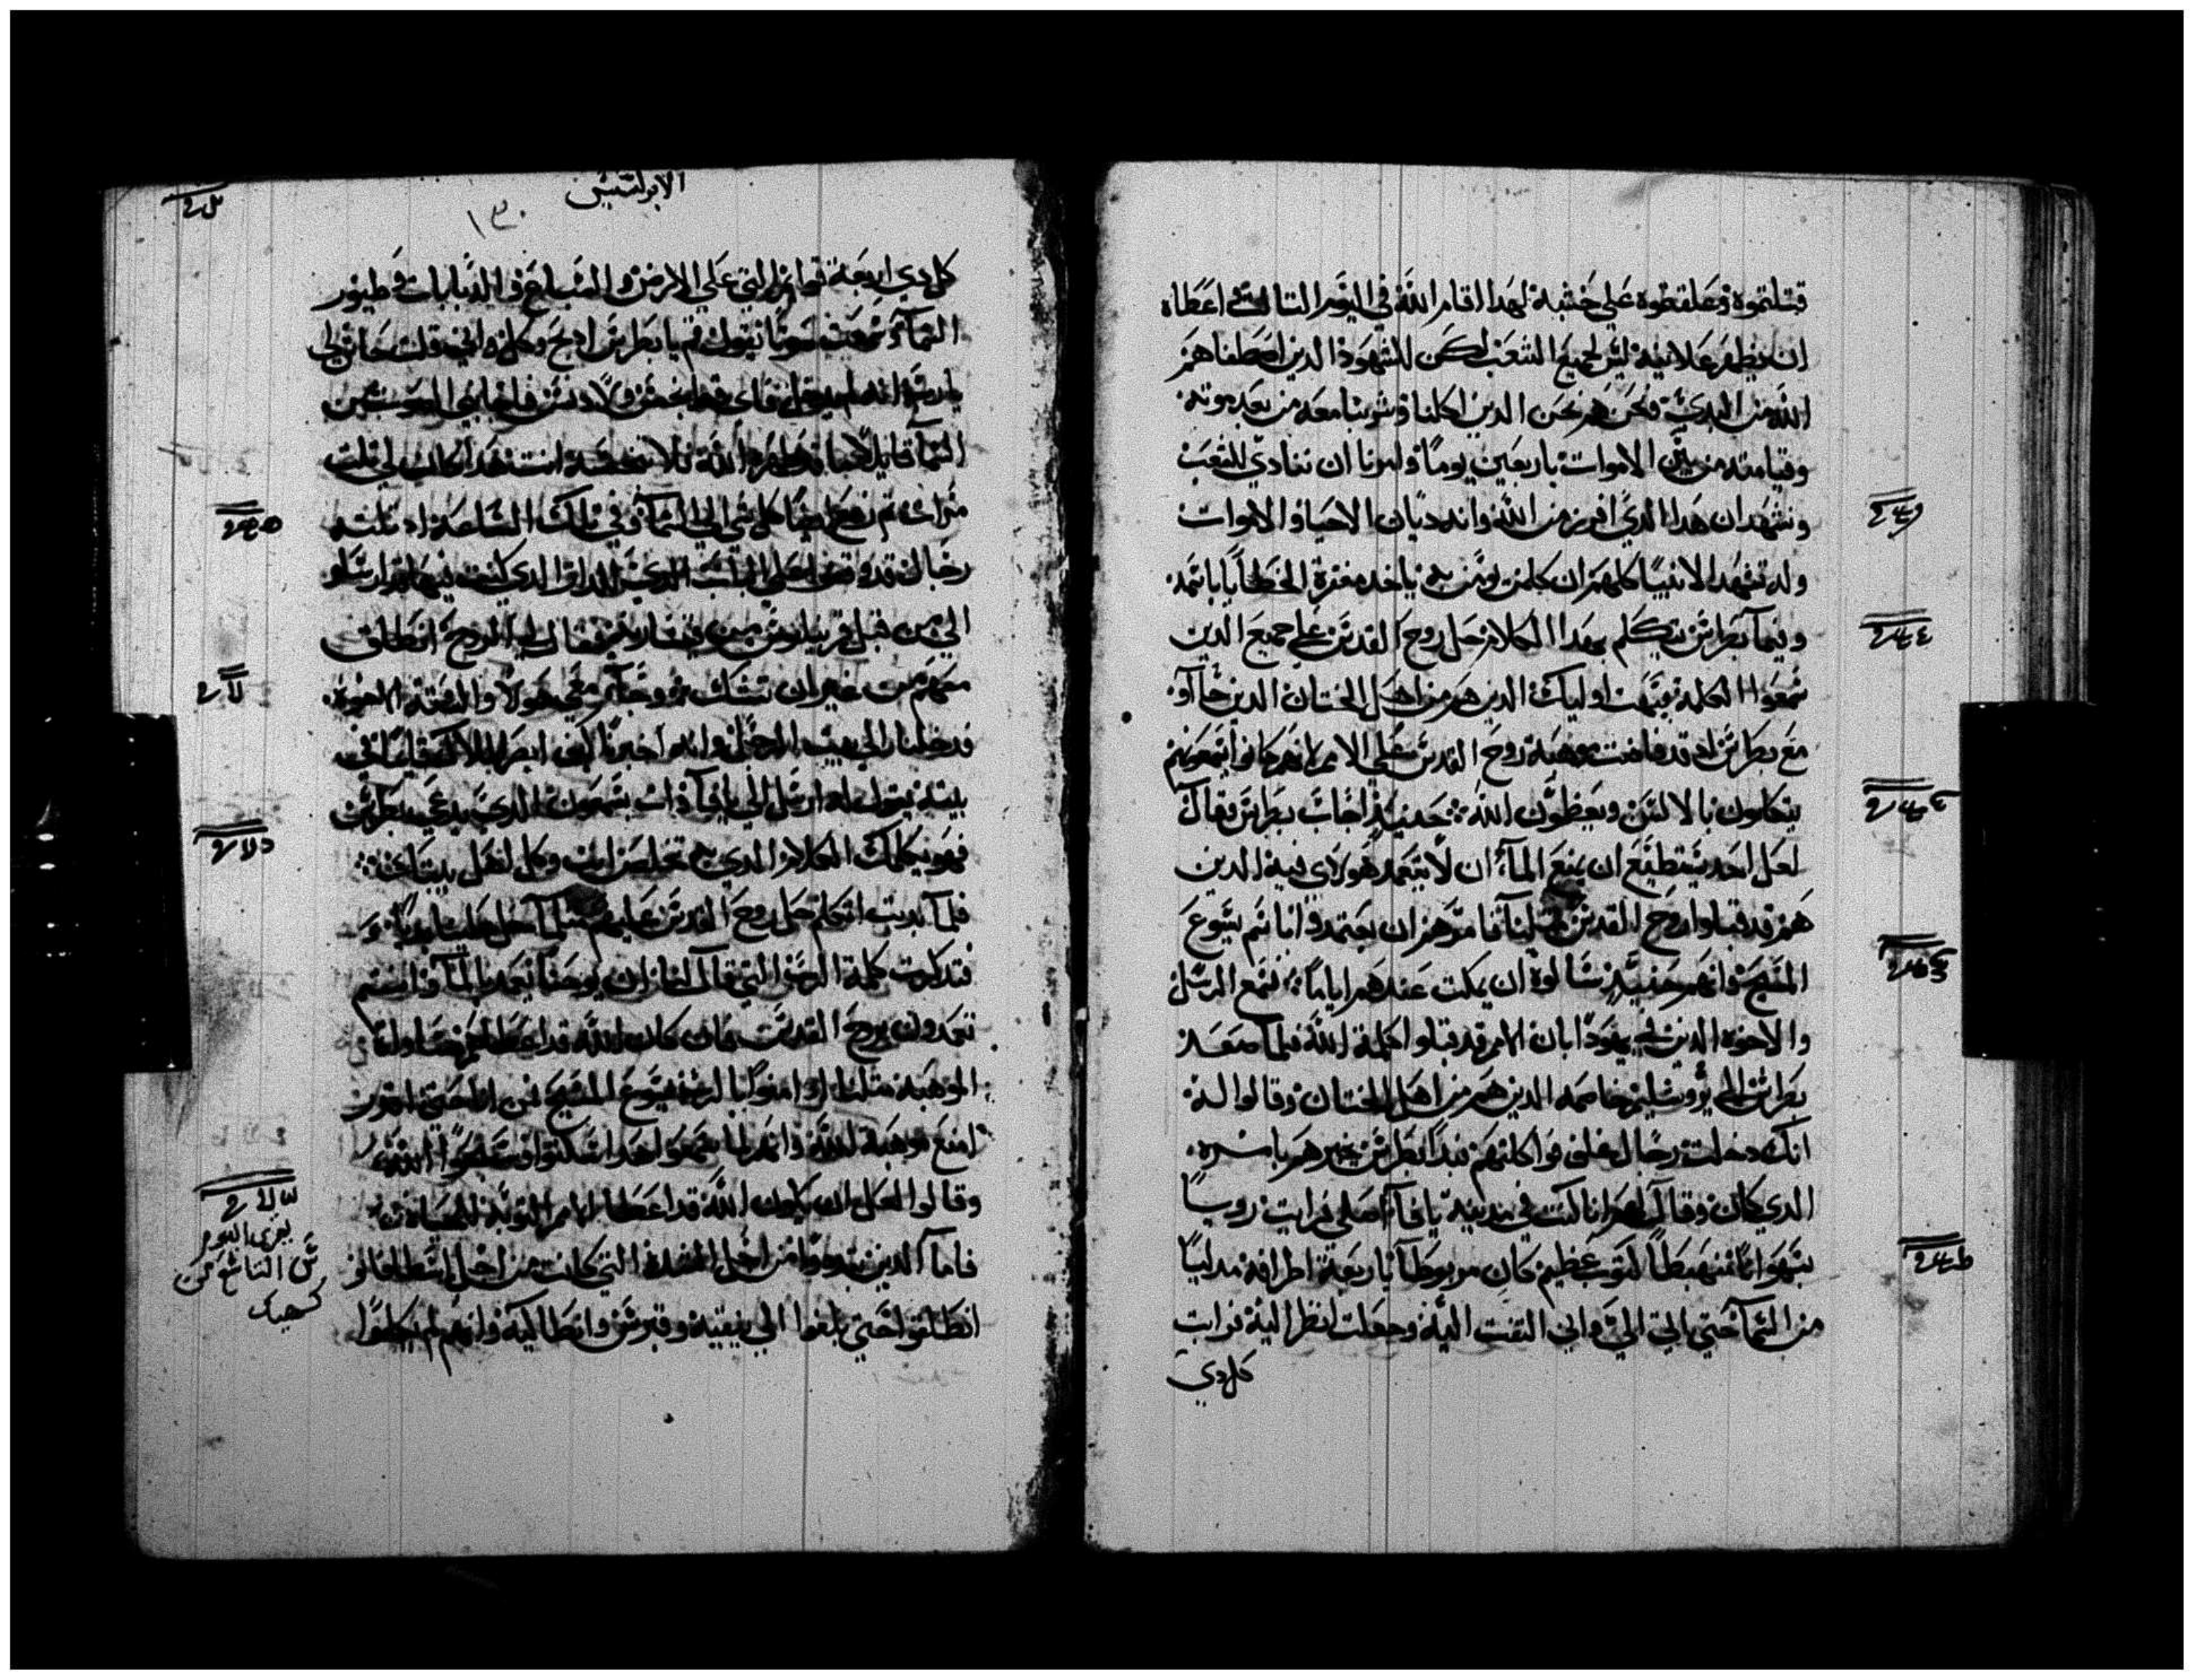 قتلتموه وعلقتموه علي خشبة لهدا اقام الله في اليوم التالت واعطاه
ان يظهر علانية ليس لجميع الشعب لكن للشهود الدين اصطفاهم
الله من البدي ونحن هم نحن الدين اكلنا وشربنا معه من بعد موته
وقيامته من بين الاموات باربعين يوما وامرنا ان ننادي للشعب
ونشهد ان هدا الدي افرز من الله وانه ديان الاحيا والاموات
وله تشهد الانبيا كلهم ان كلمن يومن به ياخد مغفرة الخطايا باسمه
وبينما بطرس يتكلم بهدا الكلام حل روح القدس علي جميع الدين
سمعوا الكلمة فبهت اوليك الدين هم من اهل الختان الدين جاآو
مع بطرس اد قد فاضت موهبة روح القدس علي الامم لانهم كانوا يسمعونهم
يتكلمون بالالسن ويعظمون الله حينيد اجاب بطرس وقال
لعل احد يستطيع ان يمنع المآ ان لا يتعمد هولاي فيه الدين
هم قد قبلوا روح القدس متلنا فامرهم ان يعتمدوا باسم يسوع
المسيح وانهم حينيد سالوه ان يمكت عندهم اياما فسمع الرسل
والاخوه الدين في يهودا بان الامم قد قبلوا كلمة الله فلما صعد
بطرس الي يروشليم خاصمه الدين هم من اهل الختان وقالوا له
انك دخلت رجال غلف واكلت معهم فبدا بطرس يخبرهم بامره
الدي كان وقال لهم انا كنت في مدينة يافا اصلي فرايت رويا
منهبطا كتوب عظيم كان مربوطا باربعة اطرافه مدليا
من السمآ حتي اتي الي واني التفت اليه وجعلت انظر اليه فرايت
كل دي
الابركسيس
١٣٠
كل دي اربعة قوايم التي علي الارض والسباع والدبابات وطيور
السمآ وسمعت صوتا يقول قم يا بطرس ادبح وكل واني قلت حاش لي
يارب انه لم يدخل فاي قط نجس ولا دنس فاجابني الصوت من
السمآ قايلا ما قد طهره الله فلا تنجسه انت هدا كان لي تلت
مرات تم رفع ايضا كل شي الي السمآ وفي تلك الساعة اد تلته
رجال قد وقفوا علي الباب الدي للدار الدي كنت فيها قد ارسلو
الي من قبل قرنيليوس من قيصاريه فقال لي الروح انطلق
معهم من غير ان تشك وجآ معي هولا والستة الاخوة
فدخلنا الي بيت الرجل وانه اخبرنا كيف ابصر الملاك قايما في
بيته يقول له ارسل الي يافا وات بسمعون الدي يدعي بطرس
فهو يكلمك الكلام الدي به تخلص انت وكل اهل بيتك
فلما بديت اتكلم حل روح القدس عليهم متلما حل علينا بديا
فتدكرت كلمة الرب التي قال لنا ان يوحنا يعمد بالمآ وانتم
تعمدون بروح القدس فان كان الله قد اعطاهم
الموهبة متلنا اد امنوا بالرب يسوع المسيح فمن انا حتي اقدر
امنع موهبة الله وانهم لما سمعوا هدا سكتوا وسبحوا الله
وقالوا لعل ان يكون الله قد اعطا الامم التوبة للحياة
فاما الدين تبددوا من اجل الشدة التي كانت من اجل اسطفانو
انطلقوا حتي بلغوا الي فينيقية وقبرس وانطاكية وانهم لم يكلموا
يقرى اليوم
التاسع من
كيهك